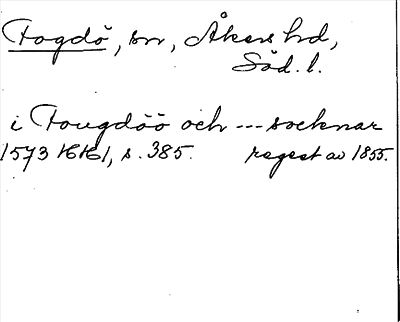 Fogdö, sn, Åkers hd,
Söd. l.
i Fougdöö och --- socknar
1573 HH1, s. 385. regest av 1855.